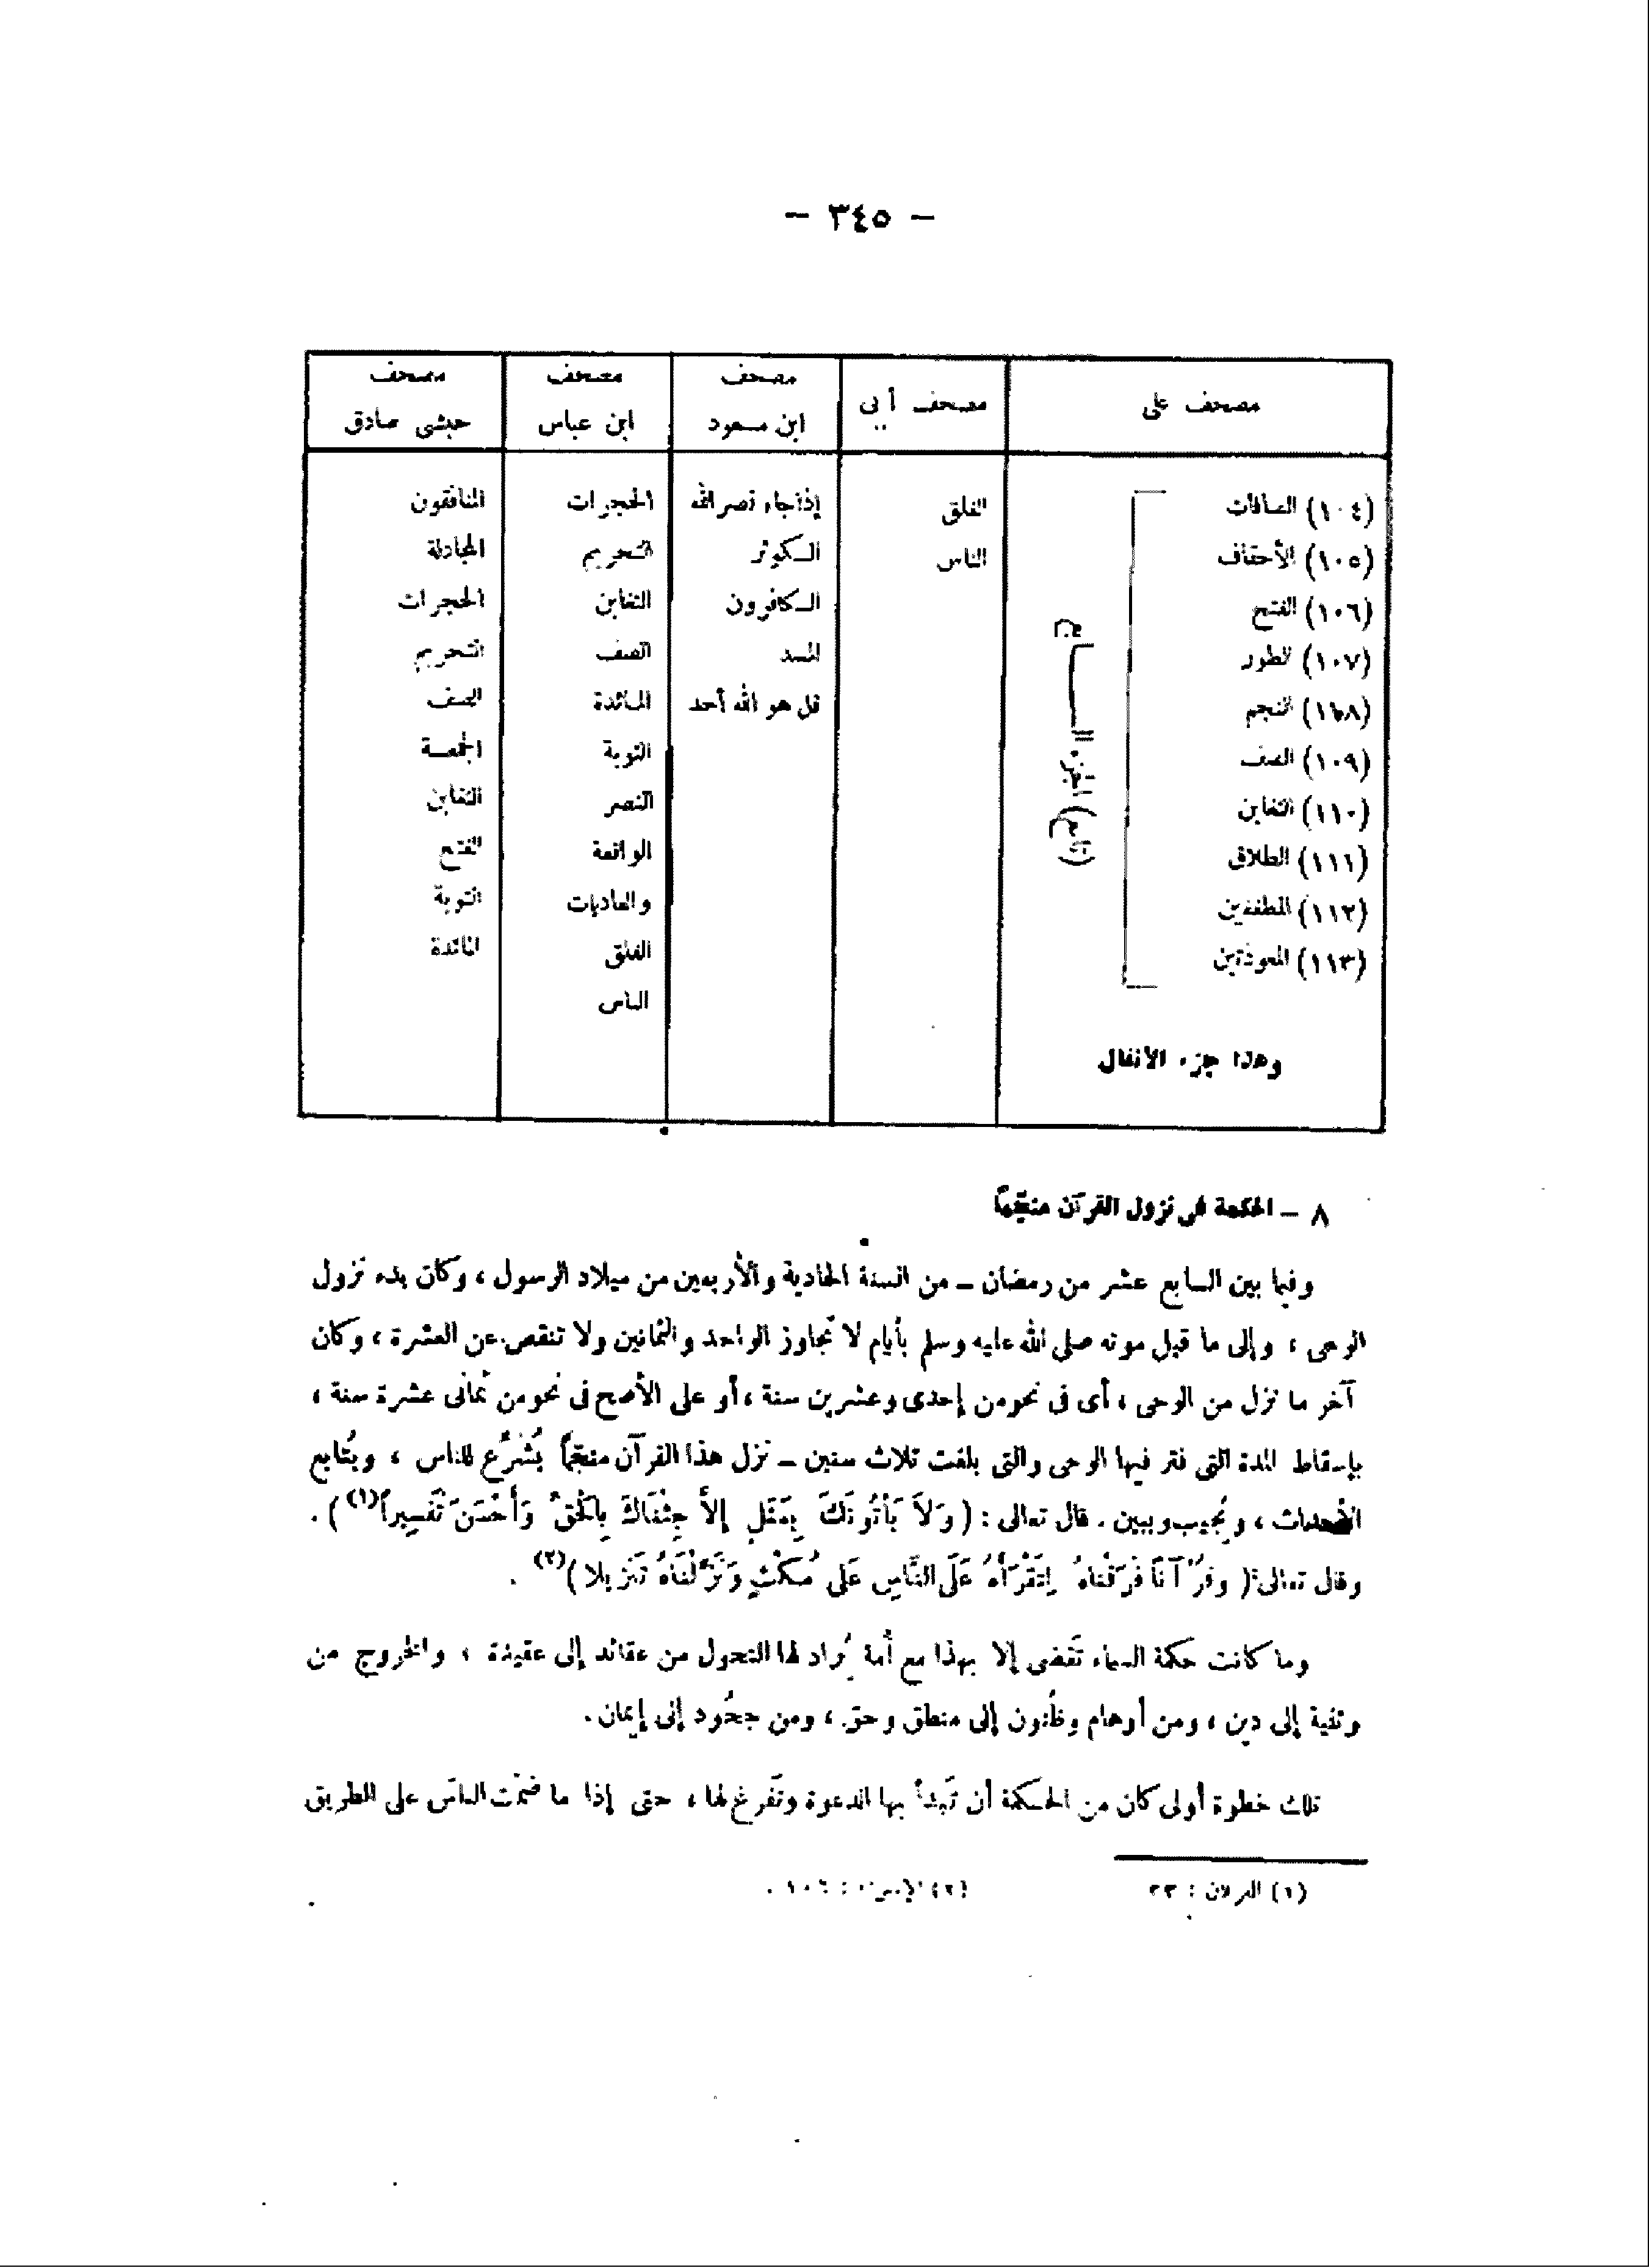 - ٣٤٥ -
مصحف على | مصحف أبى | مصحف ابن مسعود | مصحف ابن عباس | مصحف حبشى صادق
(١٠٤) الصافات | الفلق | إذا جاء نصر الله | الحجرات | المنافقون
(١٠٥) الأحقاف | الناس | الكوثر | التحريم | المجادلة
(١٠٦) الفتح | الكافرون | التغابن | الحجرات
(١٠٧) الطور | المسد | الصف | التحريم
(١٠٨) النجم | قل هو الله أحد | المائدة | الصف
(١٠٩) الصف | التوبة | الجمعة
(١١٠) التغابن | النصر | التغابن
(١١١) الطلاق | الواقعة | الفتح
(١١٢) المطففين | والعاديات | التوبة
(١١٣) المعوذتين | الفلق | المائدة
الناس
(تابع) الجزء السابع
وهذا جزء الأنفال
٨ – الحكمة فى نزول القرآن منجّماً
وفيما بين السابع عشر من رمضان – من السنة الحادية والأربعين من ميلاد الرسول ، وكان بدء نزول
الوحى ، وإلى ما قبل موته صلى الله عليه وسلم بأيام لا تجاوز الواحد والثمانين ولا تنقص عن العشرة ، وكان
آخر ما نزل من الوحى ، أى فى نحو من إحدى وعشرين سنة ، أو على الأصح فى نحو من ثمانى عشرة سنة ،
بإسقاط المدة التى فتر فيها الوحى والتى بلغت ثلاث سنين – نزل هذا القرآن منجّماً يُشرِّع للناس ، ويُتابع
الأحداث ، ويُجيب ويبين . قال تعالى : ( وَلاَ يَأْتُونَكَ بِمَثَلٍ إلاَّ جِئْنَاكَ بِالْحَقِّ وَأَحْسَنَ تَفْسِيراً(١) ) .
وقال تعالى : ( وقُرْآناً فَرَقْنَاهُ لِتَقْرَأَهُ عَلَى النَّاسِ عَلَى مُكْثٍ وَنَزَّلْنَاهُ تَنْزِيلا )(٢) .
وما كانت حكمة السماء تَقضى إلا بهذا مع أمة يُراد لها التحول من عقائد إلى عقيدة ، والخروج من
وثنية إلى دين ، ومن أوهام وظُنون إلى منطق وحق ، ومن جحُود إلى إيمان .
تلك خطوة أولى كان من الحكمة أن تَبدأ بها الدعوة وتَفرغ لها ، حتى إذا ما ضمّت الناس على الطريق
(١) الفرقان : ٣٣
(٢) الإسراء : ١٠٦ .